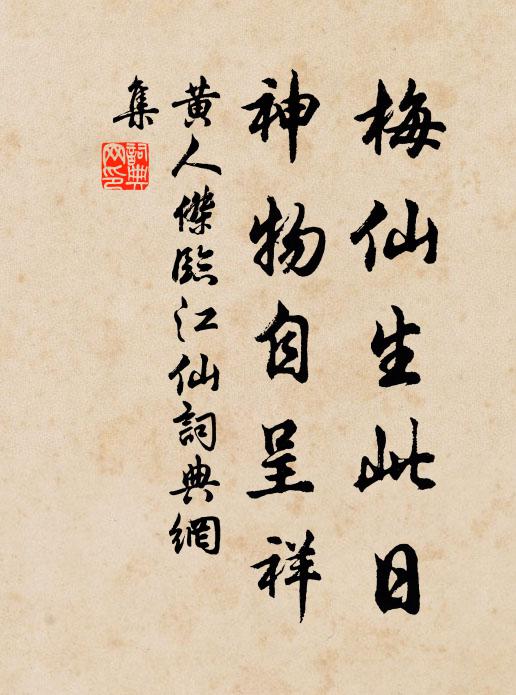 梅仙生此日
神物自呈祥
黄人傑臨江仙詞典網
集
詞典網印